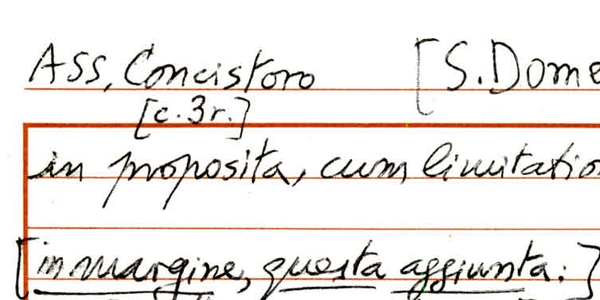 ASS, Concistoro [S. Dome
[c. 3r.]
in proposita, cum limitatio
[in margine, questa aggiunta:]